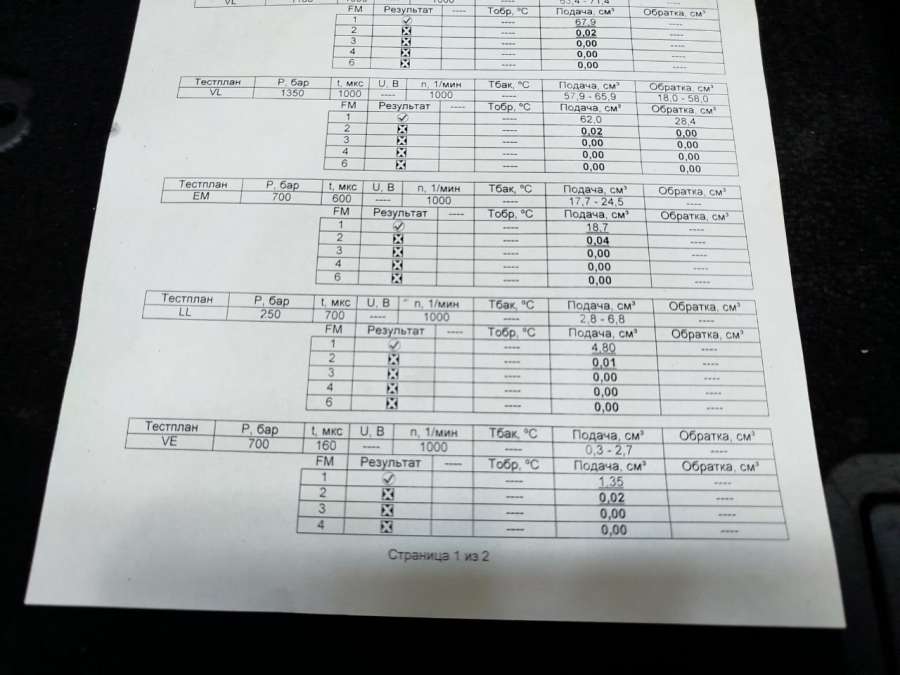 VL 1000 63,4 - 71,4
FM Результат ---- Тобр, ºС Подача, см³ Обратка, см³
1 ---- 67,9 ----
2 ---- 0,02 ----
3 ---- 0,00 ----
4 ---- 0,00 ----
6 ---- 0,00 ----
Тестплан Р, бар t, мкс U, В n, 1/мин Тбак, ºС Подача, см³ Обратка, см³
VL 1350 1000 ---- 1000 ---- 57,9 - 65,9 18,0 - 58,0
FM Результат ---- Тобр, ºС Подача, см³ Обратка, см³
1 ---- 62,0 28,4
2 ---- 0,02 0,00
3 ---- 0,00 0,00
4 ---- 0,00 0,00
6 ---- 0,00 0,00
Тестплан Р, бар t, мкс U, В n, 1/мин Тбак, ºС Подача, см³ Обратка, см³
EM 700 600 ---- 1000 ---- 17,7 - 24,5 ----
FM Результат ---- Тобр, ºС Подача, см³ Обратка, см³
1 ---- 18,7 ----
2 ---- 0,04 ----
3 ---- 0,00 ----
4 ---- 0,00 ----
6 ---- 0,00 ----
Тестплан Р, бар t, мкс U, В n, 1/мин Тбак, ºС Подача, см³ Обратка, см³
LL 250 700 ---- 1000 ---- 2,8 - 6,8 ----
FM Результат ---- Тобр, ºС Подача, см³ Обратка, см³
1 ---- 4,80 ----
2 ---- 0,01 ----
3 ---- 0,00 ----
4 ---- 0,00 ----
6 ---- 0,00 ----
Тестплан Р, бар t, мкс U, В n, 1/мин Тбак, ºС Подача, см³ Обратка, см³
VE 700 160 ---- 1000 ---- 0,3 - 2,7 ----
FM Результат ---- Тобр, ºС Подача, см³ Обратка, см³
1 ---- 1,35 ----
2 ---- 0,02 ----
3 ---- 0,00 ----
4 ---- 0,00 ----
Страница 1 из 2